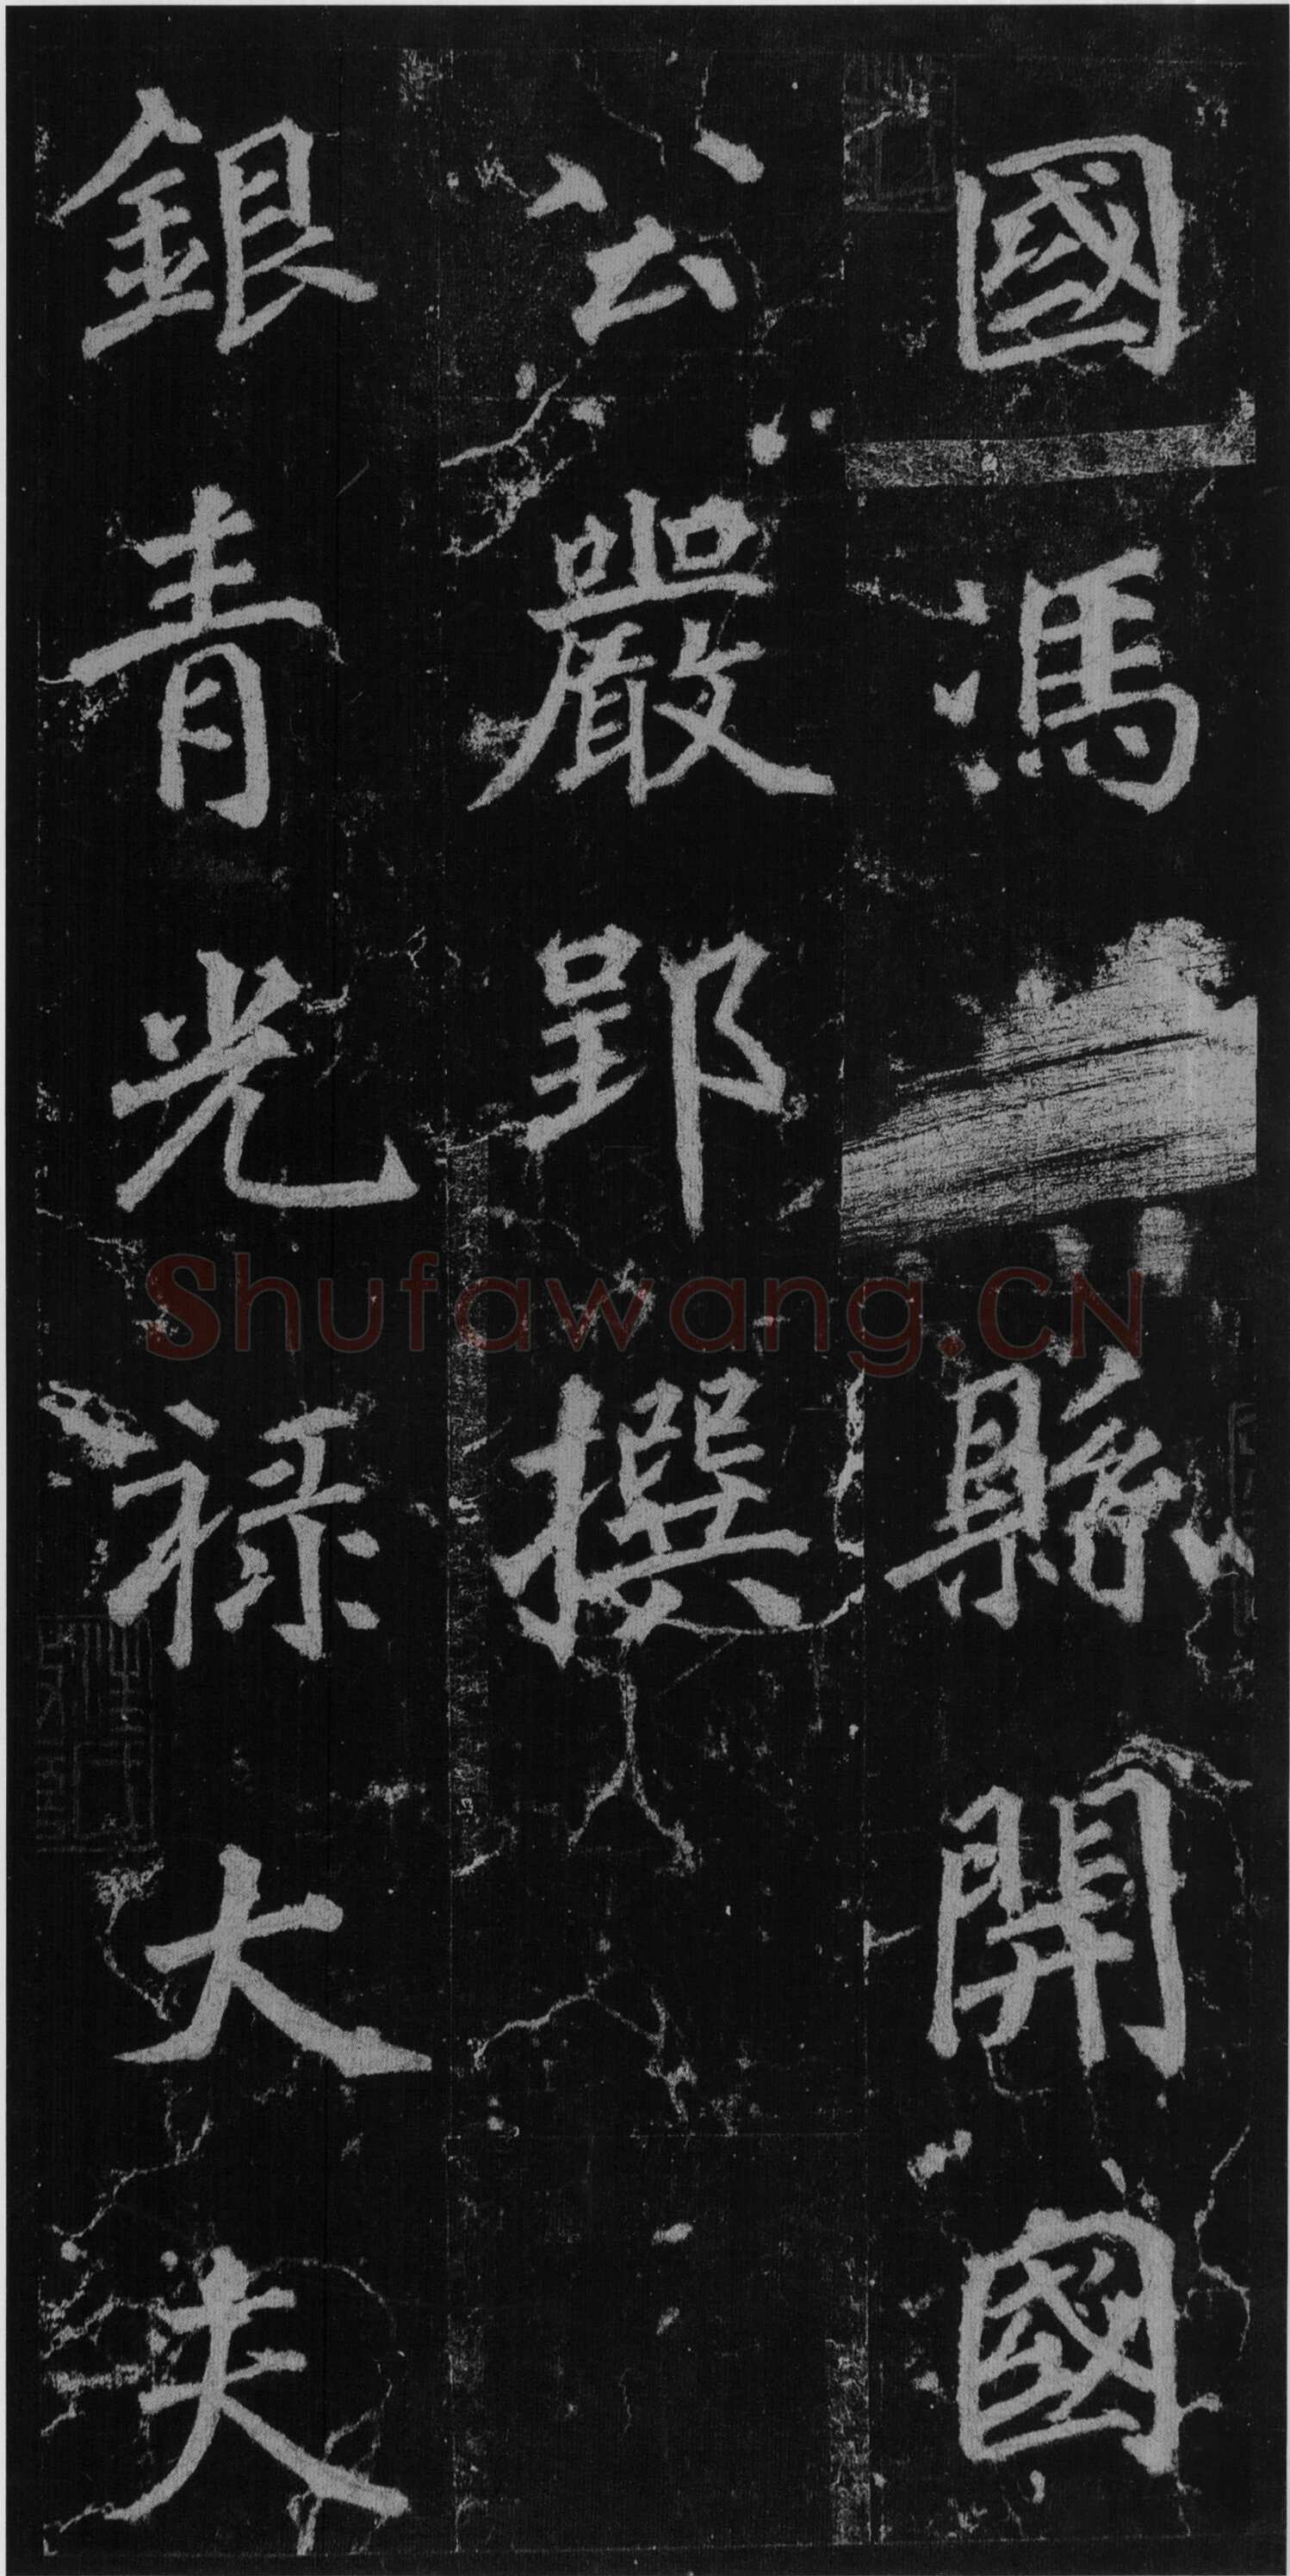 國馮縣開國
公嚴郢撰
銀青光祿大夫
Shufawang.CN